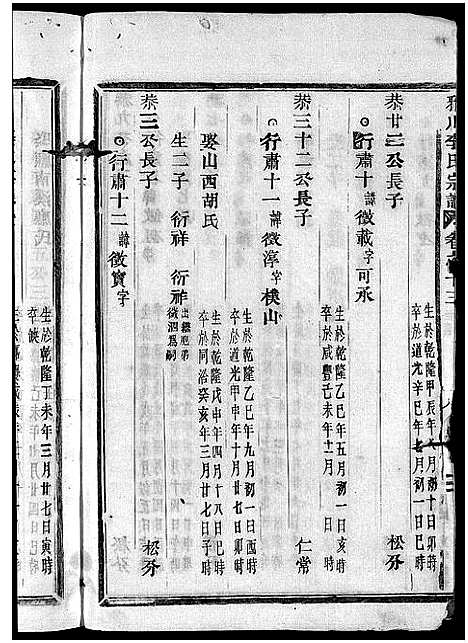 李氏宗譜
生於乾隆甲辰年八月初十日卯時
卒於道光辛巳年七月初一日巳時
松芬
恭廿三公長子
行肅十諱徵載字可承
生於乾隆乙巳年五月初一日亥時
卒於咸豐己未年十二月
仁常
恭三十二公長子
行肅十一諱徵淳字樸山
生於乾隆乙巳年九月初一日酉時
卒於道光甲申年十月廿七日卯時
娶山西胡氏
生於乾隆戊申年四月十八日巳時
卒於同治癸亥年三月廿七日子時
生二子 衍祥 衍祚出繼胞弟徵泗為嗣
恭三公長子
松芬
行肅十二諱徵寶字
生於乾隆丁未年三月廿七日寅時
卒於己未年七月廿四日巳時